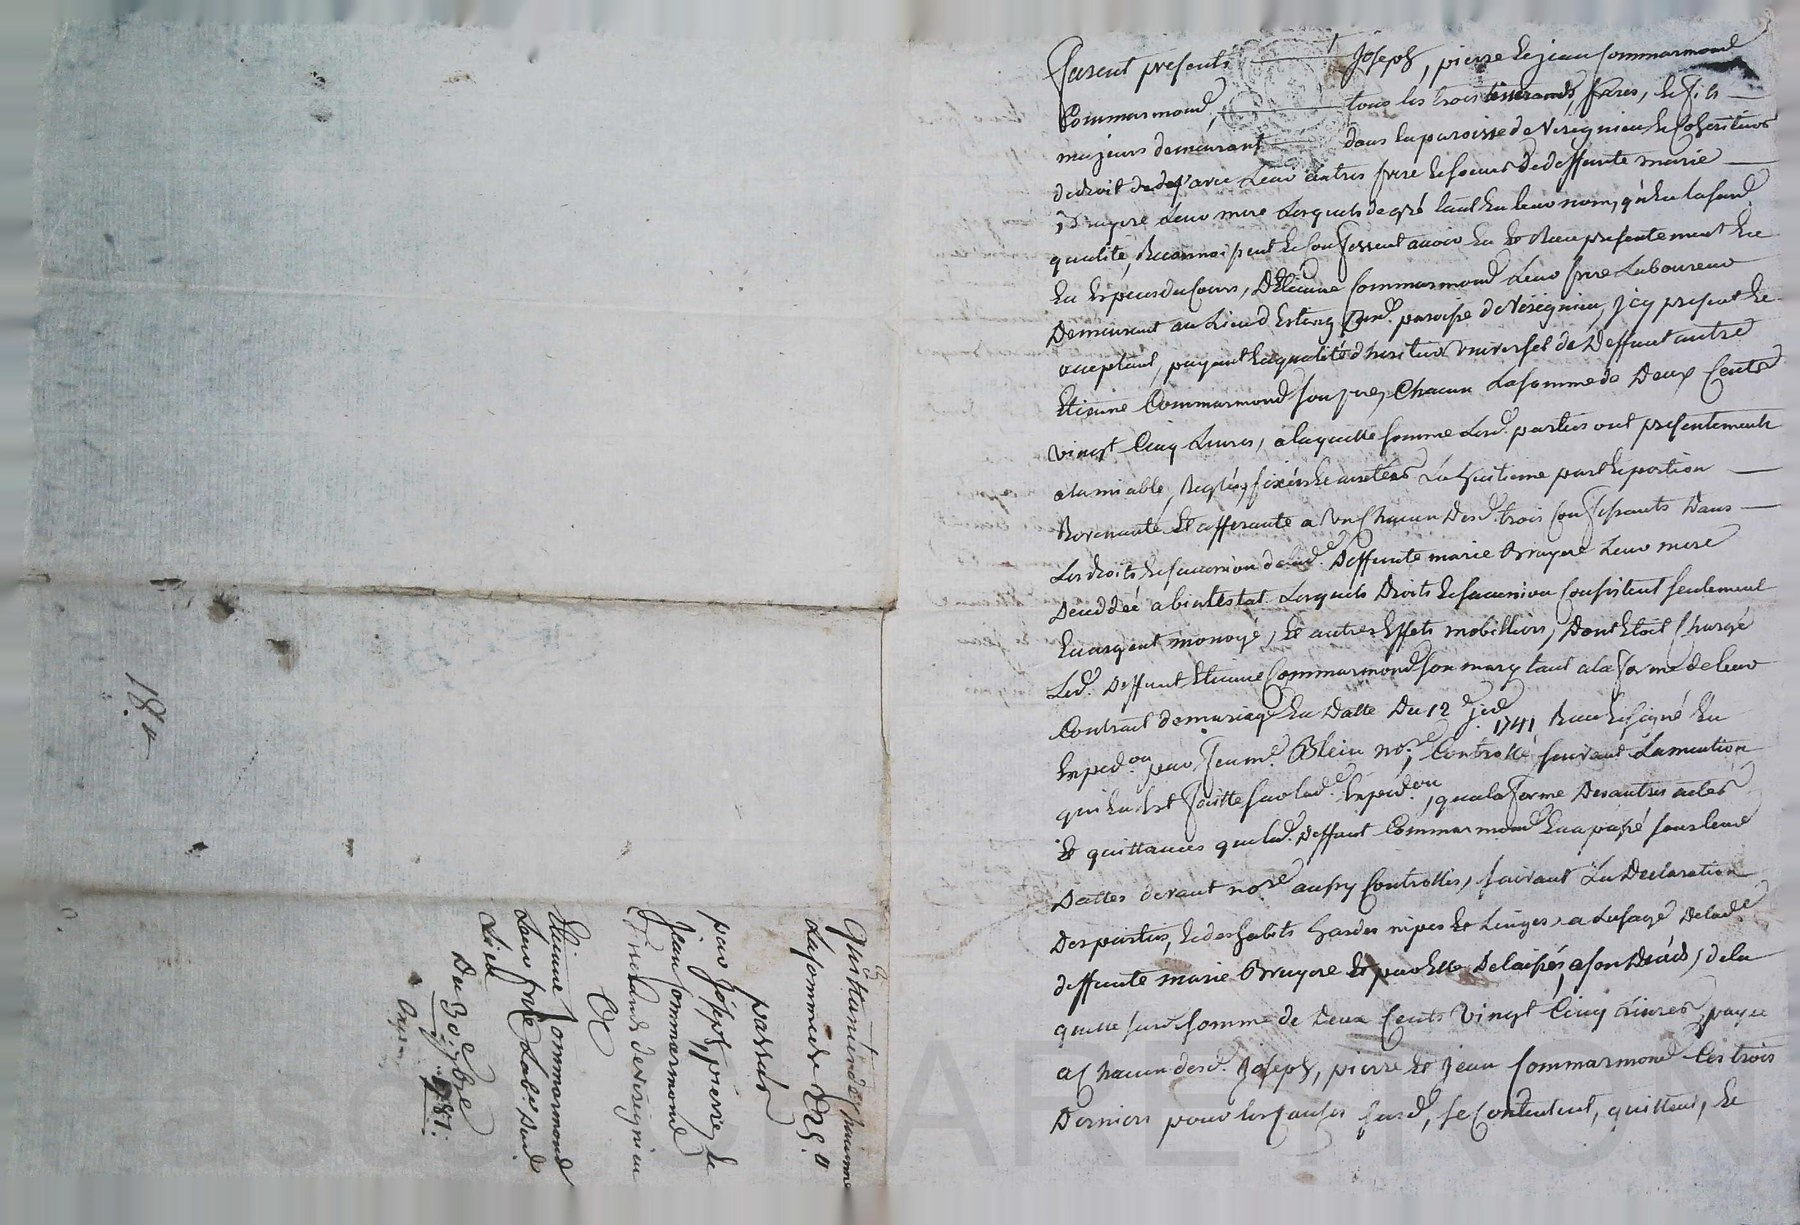 furent presents Joseph, pierre & jean Commarmond
Commarmond, tous les trois tisserands, freres, & fils
majeurs demeurant dans la paroisse de Virignieu & Coheritiers
de droit avec Leur autres frere & soeurs de deffunte marie
Bruyere Leur mere Lesquels de gré tant en leur nom, qu'en la susd.
qualité, Reconnoissent & Confessent avoir eu & Receu presentement
en especes du Cours, D'Etienne Commarmond Leur frere Laboureur
Demeurant au Lieu d' susd. paroisse de Virignieu, jcy present &
acceptant, payant en qualité d'heritier universel de Deffunt autre
Etienne Commarmond son pere, Chacun La somme de Deux Cents
vingt Cinq Livres, a laquelle somme Lesd. parties ont presentement
a lamiable, Reglés, fixés & arretés La huitieme part & portion
Revenante & afferante a un Chacun Desd. trois Confessants Dans
Les droits & succession de lad.e Deffunte marie Bruyere Leur mere
Deceddée abintestat Lesquels Droits & succession Consistent seulement
en argent monoye, & autres effets mobilliers, Dont Etoit Chargé
Led. Deffunt Etienne Commarmond son mary tant a la forme de leur
Contract de mariage en Datte Du 12e 1741 Receu & signé en
exped.on par feu m.e Blein no.re, Controllé suivant La mention
qui en Est faitte sur lad.e exped.on, qu'a la forme Des autres actes
& quittances que led. Deffunt Commarmond en a passé sous leurs
Dattes devant no.re aussy Controllés, suivant La Declaration
Des parties, & des habits hardes nipes & Linges a Lusage De lad.e
deffunte marie Bruyere & par Elle Delaissés, a son Décès, de la
quelle susd. somme de Deux Cents Vingt Cinq Livres, payée
a Chacun desd. Joseph, pierre & Jean Commarmond Ces trois
Derniers pour les Causes susd., se Contentent, quittent, &
Quittance de Chacune
La somme de 225 ₶
passée
par Joseph, pierre &
jean Commarmond
Tisserands de Virignieu
A
Etienne Commarmond
Leur frere Lab.r dud.
Lieu
Du 30.e 7bre
1781.
18.